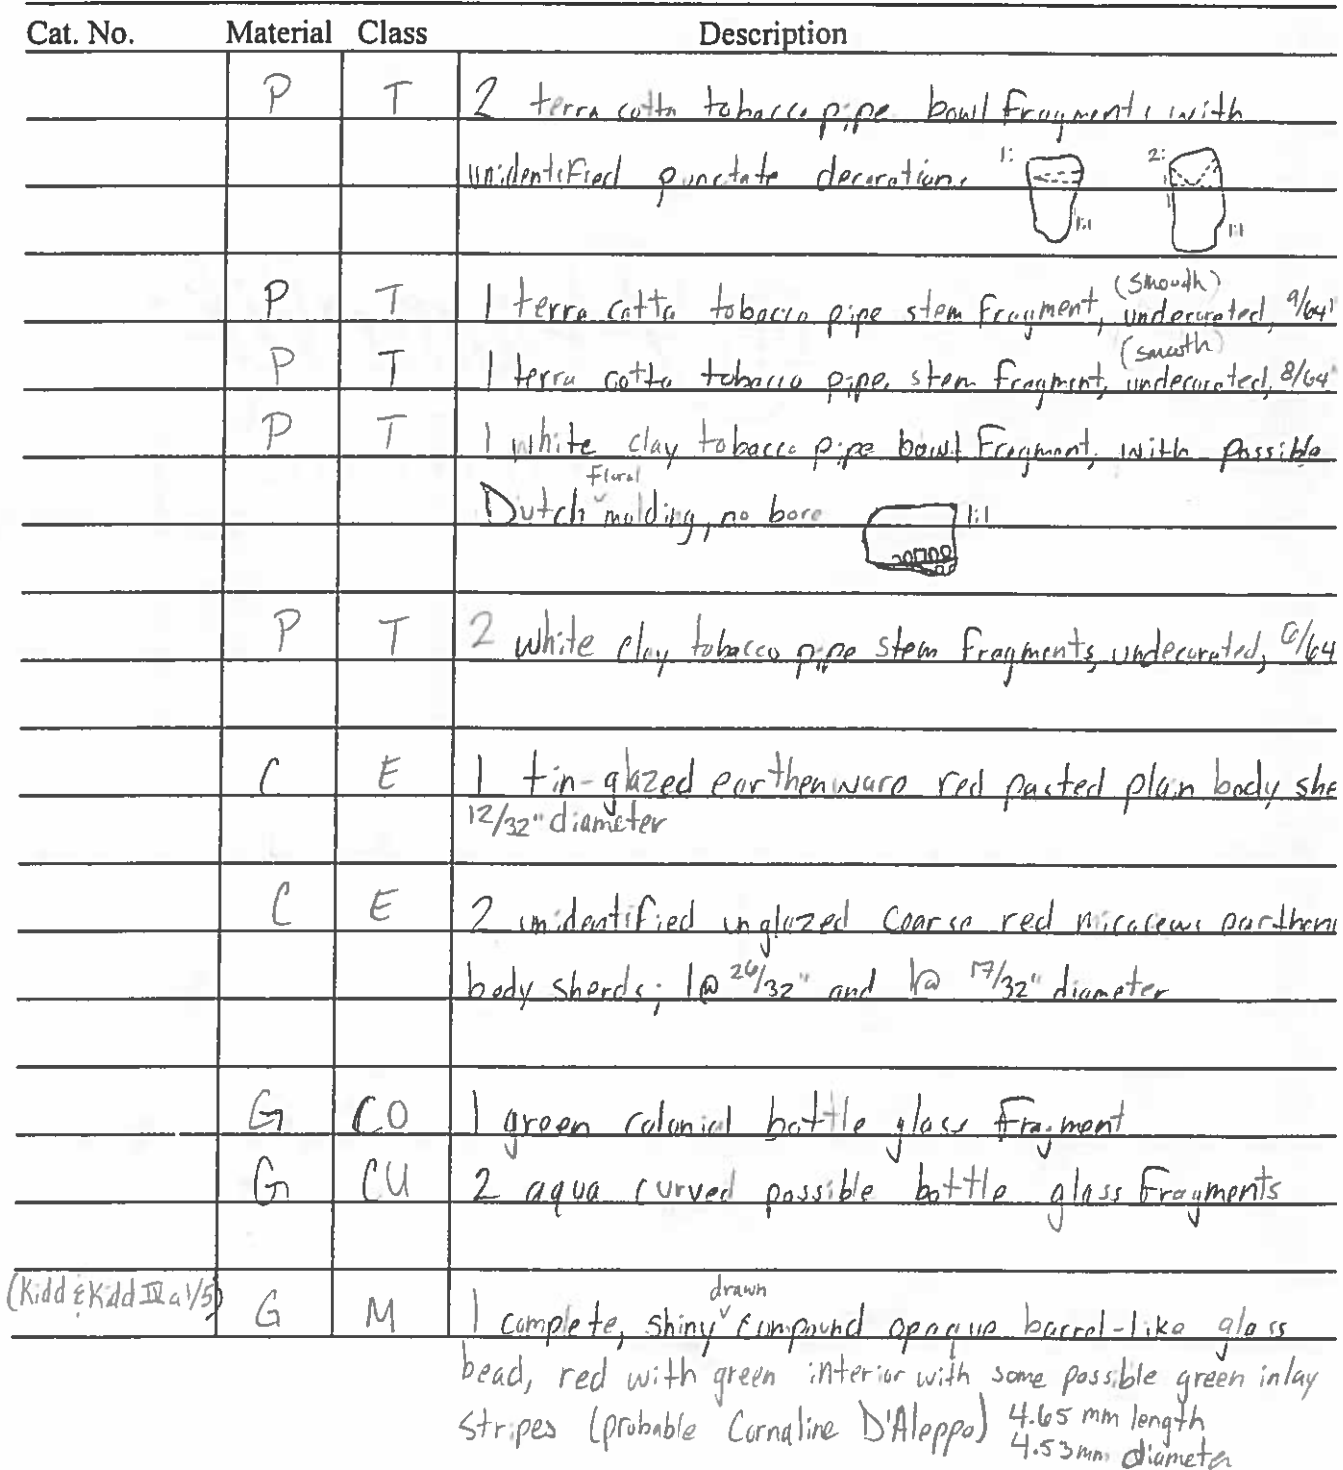 Cat. No. Material Class Description
P T 2 terra cotta tobacco pipe bowl fragments with
unidentified punctate decorations 1: 1:1 2: 1:1
(smooth)
P T 1 terra cotta tobacco pipe stem fragment, undecorated, 9/64"
(smooth)
P T 1 terra cotta tobacco pipe stem fragment, undecorated, 8/64"
P T 1 white clay tobacco pipe bowl fragment, with possible
Floral
Dutch ˅ molding, no bore 1:1
P T 2 white clay tobacco pipe stem fragments, undecorated, 6/64
C E 1 tin-glazed earthenware red pasted plain body she
12/32" diameter
C E 2 unidentified unglazed coarse red micaceous earthen
body sherds; 1@ 26/32" and 1@ 17/32" diameter
G CO 1 green colonial bottle glass fragment
G CU 2 aqua curved possible bottle glass fragments
drawn
(Kidd & Kidd IV a 1/5) G M 1 complete, shiny ˅ compound opaque barrel-like glass
bead, red with green interior with some possible green inlay
stripes (probable Cornaline D'Aleppo) 4.65 mm length
4.53mm diameter